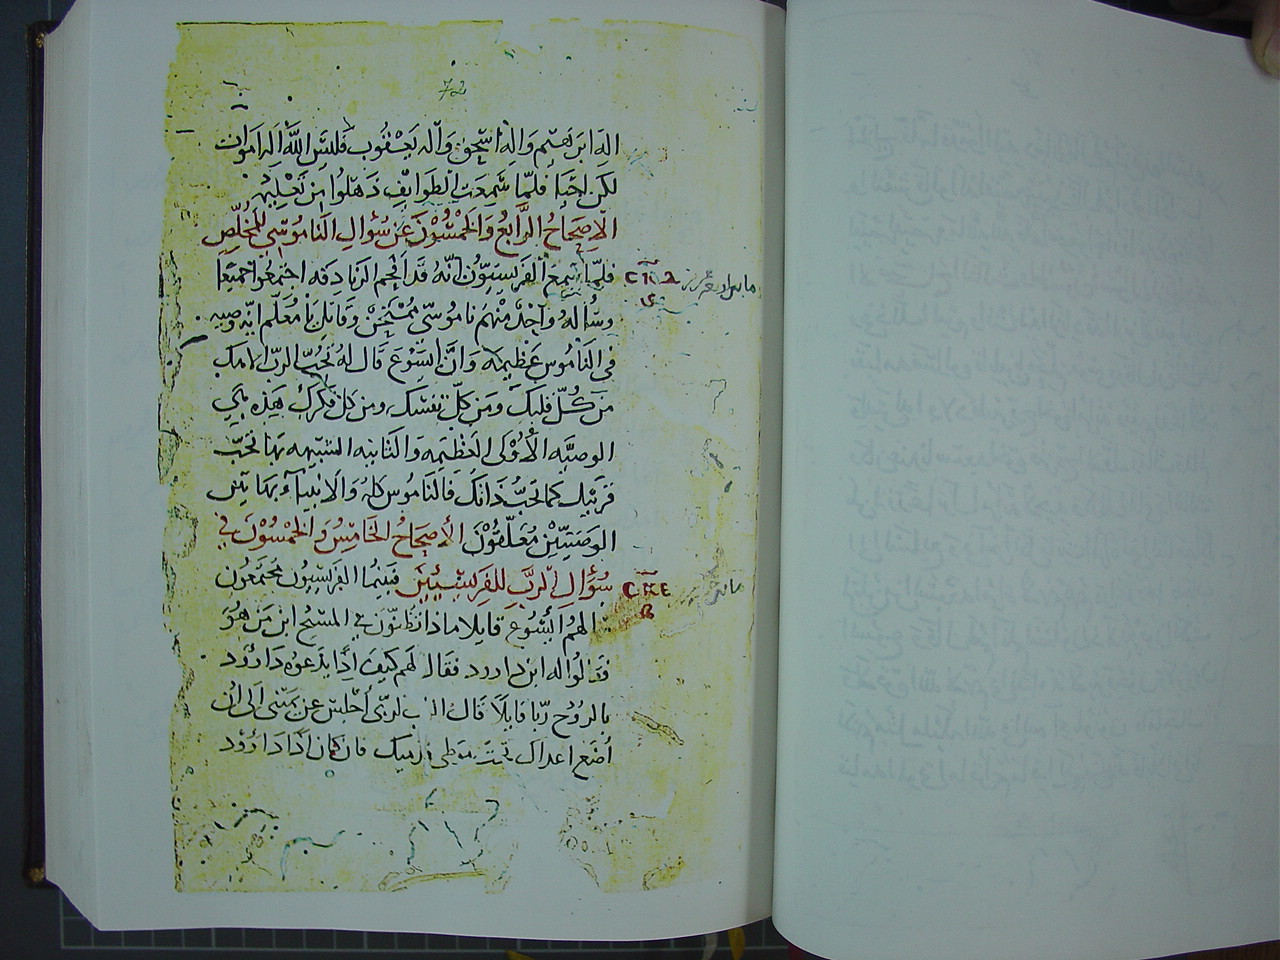 72
اله ابرهيم واله اسحق واله يعقوب فليس الله اله اموات
لكن احيا فلمّا سمعت الطوايف ذهلوا من تعليمه
الاصحاح الرابع والخمسون عن سؤال الناموسي للمخلّص
فلمّا سمع الفريسيّون انّه قد افحم الزنادقه اجتمعوا جميعا
وسأله واحد منهم ناموسّي ممتحن وقايل يا معلّم ايّه وصيه
في الناموس عظيمه وان ايسوع قال له تحبّ الربّ الاهك
من كلّ قلبك ومن كلّ نفسك ومن كل فكرك هذه هي
الوصيّه الاولى العظيمه والثانيه الشبيهه بها تحبّ
قريبك كما تحبّ ذاتك فالناموس كله والانبياء بهاتين
الوصيتيّن معلّقون الأصحاح الخامس والخمسون في
سؤال الربّ للفريسيين فبينما الفريسيون مجتمعون
الهم ايسوع قايلا ماذا تظنّون في المسيح ابن من هو
فقالوا له ابن داوود فقال لهم كيف اذًا يدعوه داوود
بالروح ربّا قايلاً قال الرب لربّي أجلس عن يميني الى ان
أضع اعداك تحت موطى قدميك فان كان اذًا داوود